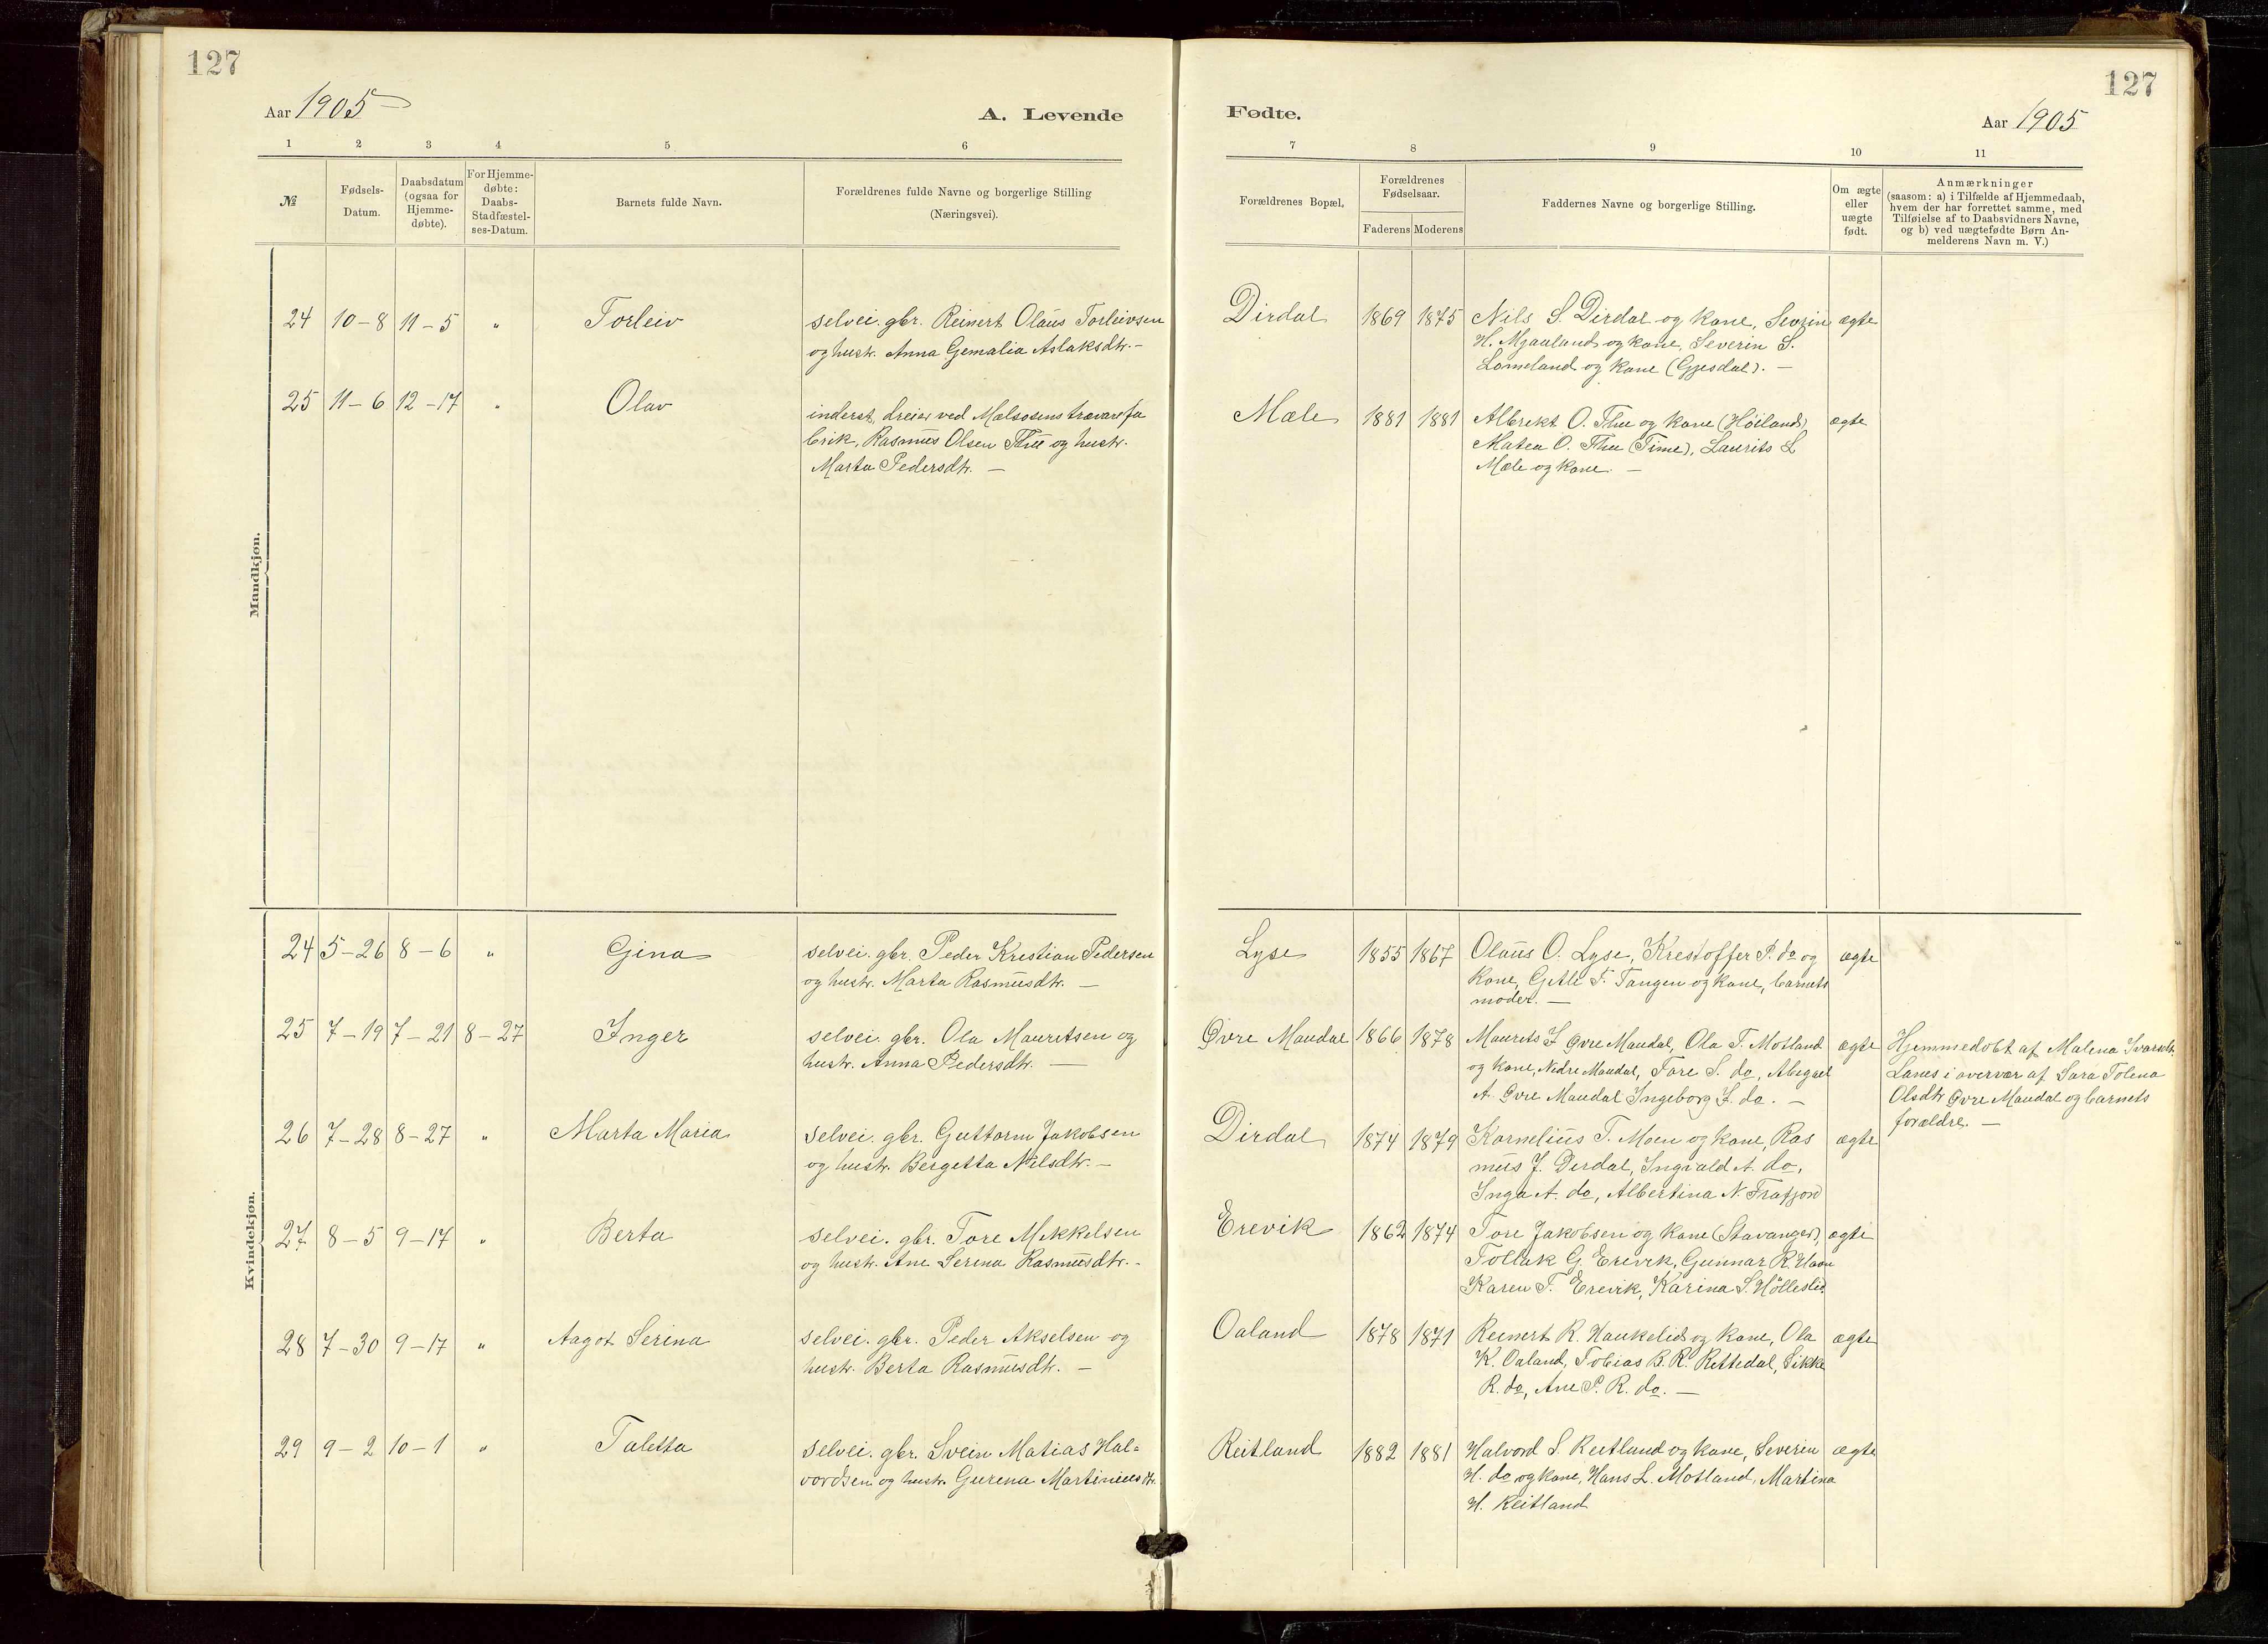 127
Aar 1905
A. Levende
1 2 3 4 5 6
№
Fødsels-
Datum.
Daabsdatum
(ogsaa for
Hjemme-
døbte).
For Hjemme-
døbte:
Daabs-
Stadfæstel-
ses-Datum.
Barnets fulde Navn.
Forældrenes fulde Navne og borgerlige Stilling
(Næringsvei).
Mandkjøn.
24 10-8 11-5 " Torleiv selvei. gbr. Reinert Olaus Torleivsen
og hustr. Anna Gemalia Aslaksdtr. -
25 11-6 12-17 " Olav inderst, dreier ved Mælsosens trævarefa
brik, Rasmus Olsen Thu og hustr.
Marta Pedersdtr. -
Kvindekjøn.
24 5-26 8-6 " Gina selvei. gbr. Peder Kristian Pedersen
og hustr. Marta Rasmusdtr. -
25 7-19 7-21 8-27 Inger selvei. gbr. Ola Mauritsen og
hustr. Anna Pedersdtr. -
26 7-28 8-27 " Marta Maria selvei. gbr. Guttorm Jakobsen
og hustr. Bergetta Nilsdtr. -
27 8-5 9-17 " Berta selvei. gbr. Tore Mikkelsen
og hustr. Ane Serina Rasmusdtr. -
28 7-30 9-17 " Aagot Serina selvei. gbr. Peder Akselsen og
hustr. Berta Rasmusdtr. -
29 9-2 10-1 " Taletta selvei. gbr. Svein Matias Hal-
vordsen og hustr. Gurena Martiniusdtr.
127
Fødte.
Aar 1905
7 8 9 10 11
Forældrenes Bopæl.
Forældrenes
Fødselsaar.
Faderens Moderens
Faddernes Navne og borgerlige Stilling.
Om ægte
eller
uægte
født.
Anmærkninger
(saasom: a) i Tilfælde af Hjemmedaab,
hvem der har forrettet samme, med
Tilføielse af to Daabsvidners Navne,
og b) ved uægtefødte Børn An-
melderens Navn m. V.)
Dirdal 1869 1875 Nils S. Dirdal og kone, Sevrin ægte
H. Mjaaland og kone, Severin S.
Lomeland og kone (Gjesdal). -
Mæle 1881 1881 Albrekt O. Thu og kone (Høiland), ægte
Matea O. Thu (Time), Laurits L
Mæle og kone. -
Lyse 1855 1867 Olaus O. Lyse, Kristoffer P. do og ægte
kone, Getle T. Tangen og kone, barnets
moder. -
Øvre Maudal 1866 1878 Maurits I Øvre Maudal, Ola T. Motland ægte
og kone, Nedre Maudal, Tore S. do, Abigael
A. Øvre Maudal Ingeborg I. do. -
Hjemmedøbt af Malena Ivarsdtr.
Lanes i overvær af Sara Tolena
Olsdtr Øvre Maudal og barnets
forældre. -
Dirdal 1874 1879 Kornelius T. Moen og kone, Ras ægte
mus J. Dirdal, Ingvald A. do,
Inga A. do, Albertina N. Frafjord
Erevik 1862 1874 Tore Jakobsen og kone (Stavanger), ægte
Tollak G. Erevik, Gunnar R. Haan
Karen T. Erevik, Karina S. Hølleslid.
Oaland 1878 1871 Reinert R. Haukelid og kone, Ola ægte
K. Oaland, Tobias B. R. Rettedal, Sikke
R. do, Ane P. R. do. -
Reitland 1882 1881 Halvord S. Reitland og kone, Severin ægte
H. do og kone, Hans L. Motland, Martina
H. Reitland